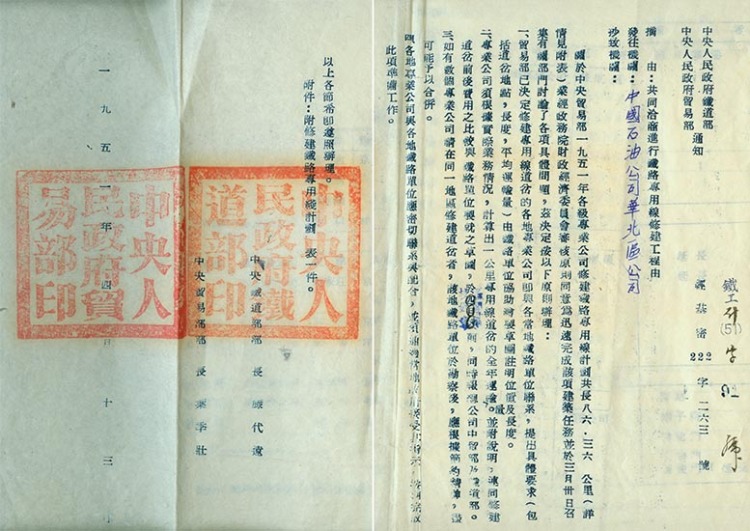 中央人民政府鐵道部
中央人民政府貿易部
通知
鐵工計(51)字 號
運基密222字二六三號
摘由:共同洽商進行鐵路專用線修建工程由
發往機關:中國石油公司華北區公司
抄致機關:
關於中央貿易部一九五一年各級專業公司修建鐵路專用線計劃共長八六·三六公里(詳
情見附表)業經政務院財政經濟委員會審核原則同意為迅速完成該項建築任務並於三月卅日召
集有關部門討論了各項具體問題,茲決定按以下原則辦理:
一、貿易部已決定修建專用線道岔的各地專業公司即與各當地鐵路單位聯系,提出具體要求(包
括道岔地點,長度,平均運輸量)由鐵路單位協助繪製草圖註明位置及長度。
二、專業公司須根據實際業務情況,計算出一公里專用線道岔的全年運輸量。並附說明,連同修建
道岔前後費用之比較與鐵路單位製就之草圖,於 前,同時報總公司中貿部及鐵道部。
三、如有數個專業公司請在同一地區修建道岔者,該地鐵路單位於勘察後,應根據節約精神,儘
可能予以合併。
四、各地專業公司與各地鐵路單位應密切聯系與配合,
此項準備工作。
以上各節希即遵照辦理。
附件:附修建鐵路專用線計劃表一件。
中央鐵道部部長滕代遠
中央貿易部部長葉季壯
一九五一年四月十三日
中央人民政府鐵道部印
中央人民政府貿易部印